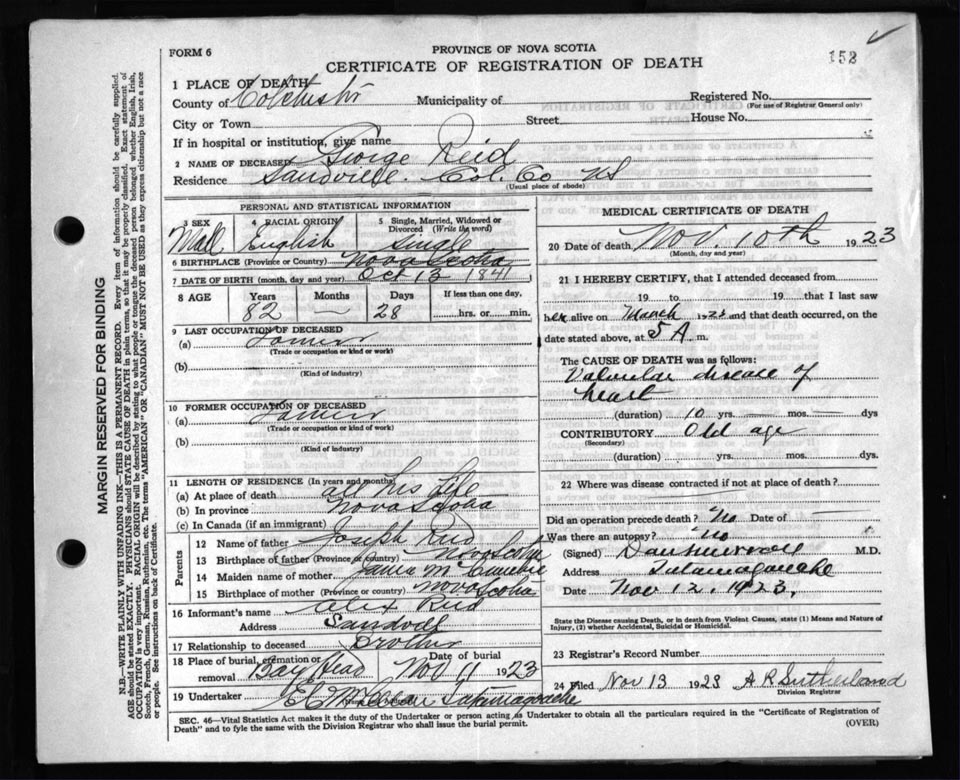 FORM 6
PROVINCE OF NOVA SCOTIA
152
CERTIFICATE OF REGISTRATION OF DEATH
1 PLACE OF DEATH
County of Colchester Municipality of Registered No.
(For use of Registrar General only)
City or Town Street House No.
If in hospital or institution, give name
2 NAME OF DECEASED George Reid
Residence Sandville. Col. Co NS
(Usual place of abode)
PERSONAL AND STATISTICAL INFORMATION
3 SEX 4 RACIAL ORIGIN 5 Single, Married, Widowed or Divorced (Write the word)
Mall English Single
6 BIRTHPLACE (Province or Country) Nova Scotia
7 DATE OF BIRTH (month, day and year) Oct 13 1841
8 AGE Years Months Days If less than one day,
82 — 28 hrs. or min.
9 LAST OCCUPATION OF DECEASED
(a) Farmer
(Trade or occupation or kind or work)
(b)
(Kind of industry)
10 FORMER OCCUPATION OF DECEASED
(a) Farmer
(Trade or occupation or kind of work)
(b)
(Kind of industry)
11 LENGTH OF RESIDENCE (In years and months)
(a) At place of death all his life
(b) In province Nova Scotia
(c) In Canada (if an immigrant)
Parents
12 Name of father Joseph Reid
13 Birthplace of father (Province or country) Nova Scotia
14 Maiden name of mother
15 Birthplace of mother (Province or country) Nova Scotia
16 Informant's name Alex Reid
Address Sandville
17 Relationship to deceased Brother
18 Place of burial, cremation or removal Bay Head Date of burial Nov 11 1923
19 Undertaker Tatamagouche
MEDICAL CERTIFICATE OF DEATH
20 Date of death Nov. 10th 1923
(Month, day and year)
21 I HEREBY CERTIFY, that I attended deceased from
19 to 19 that I last saw
h alive on March 192 and that death occurred, on
date stated above, at 5 A m.
The CAUSE OF DEATH was as follows:
Valvular disease of
heart
(duration) 10 yrs. — mos. — dys
CONTRIBUTORY Old age
(Secondary)
(duration) yrs. mos. dys.
22 Where was disease contracted if not at place of death?
Did an operation precede death? No Date of —
Was there an autopsy? No
(Signed) M.D.
Address Tatamagouche
Date Nov 12, 1923.
State the Disease causing Death, or in death from Violent Causes, state (1) Means and Nature of
Injury, (2) whether Accidental, Suicidal or Homicidal.
23 Registrar's Record Number
24 Filed Nov 13 1923 A R Sutherland
Division Registrar
SEC. 46—Vital Statistics Act makes it the duty of the Undertaker or person acting as Undertaker to obtain all the particulars required in the "Certificate of Registration of
Death" and to fyle the same with the Division Registrar who shall issue the burial permit.
(OVER)
MARGIN RESERVED FOR BINDING
N.B.—WRITE PLAINLY WITH UNFADING INK—THIS IS A PERMANENT RECORD. Every item of information should be carefully supplied.
AGE should be stated EXACTLY. PHYSICIANS should STATE CAUSE OF DEATH in plain terms, so that it may be properly classified. Exact statement of
OCCUPATION is very important. RACIAL ORIGIN will be described by stating to what people or tongue the deceased person belonged, whether English, Irish,
Scotch, French, German, Russian, Ruthenian, etc. The terms "AMERICAN" or "CANADIAN" MUST NOT BE USED as they express citizenship but not a race
or people. See instructions on back of Certificate.